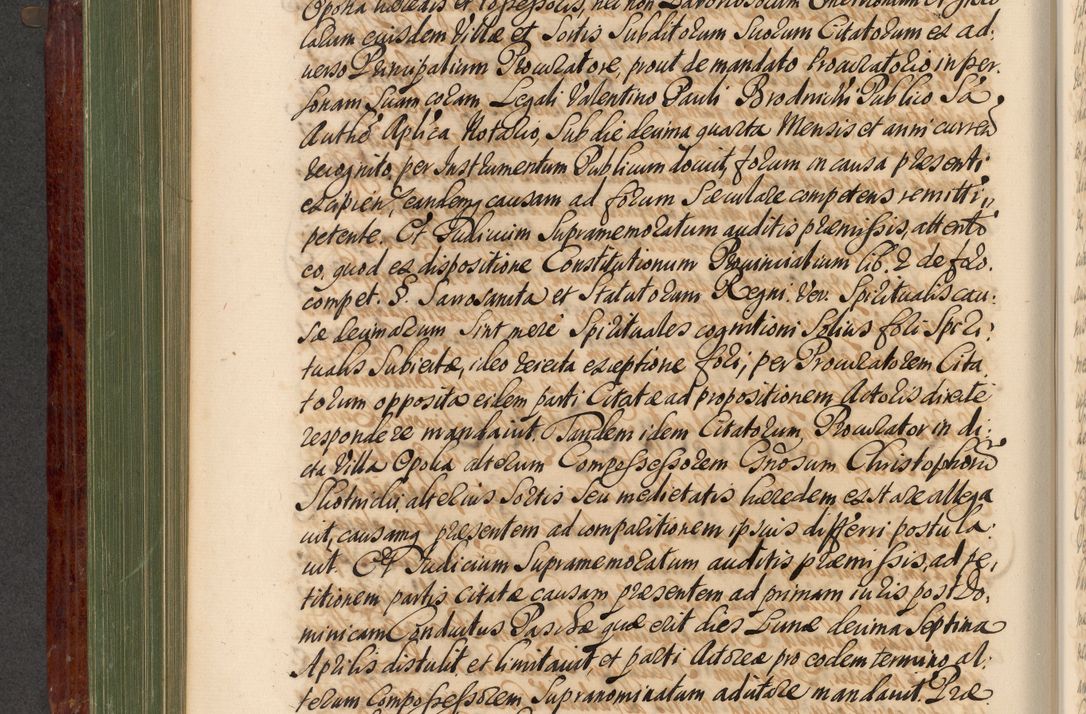 Opolia hæredis et Possessoris, nec non Laboriosorum
larum eiusdem Villæ et Sortis Subditorum Suorum Citatorum ex ad:
uerso Principalium Procuratore, prout de mandato Procuratorio in per,
sonam suam coram Legali Valentino Pauli Brodnichi Publico Sa
Authe Aplica Notario, sub die decima quarta Mensis et anni curren
recognito, per Instrumentum Publicum docuit, forum in causa præsenti
excipien, eandemq causam ad forum Sæculare competens remitti,
petente. Et Iudicium Supramemoratum auditis præmissis, attento
eo, quod ex dispositione Constitutionum Prouincialium lib. 2 de foro.
compet. §. Sacrosancta et Statutorum Regni. Ver. Spiritualis cau:
sæ decimarum sint meré Spirituales cognitioni Solius fori Spiri:
tualis Subiectæ, ideo reiecta exceptione fori, per Procuratorem Cita
torum opposita eidem parti Citatæ ad propositionem Actoris directe
respondere mandauit. Tandem idem Citatorum Procurator in di:
cta Villa Opolia alterum Compossessorem Gnosum Christophorum
Skotnicki, alterius Sortis seu medietatis hæredem exstare allega
uit, causamq præsentem ad comparitionem ipsius differri postula:
uit. Et Iudicium Supramemoratum auditis præmissis, ad pe,
titionem partis Citatæ causam præsentem ad primam iuris post Do,
minicam Conductus Paschæ quæ erit dies Lunæ decima Septima
Aprilis distulit et limitauit, et parti Actoreæ pro eodem termino, al:
terum Compossessorem Supranominatum adcitare mandauit. Præ